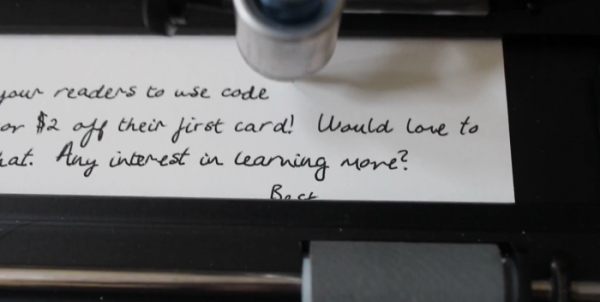 your readers to use code
or $2 off their first card! Would love to
hat. Any interest in learning more?
Best